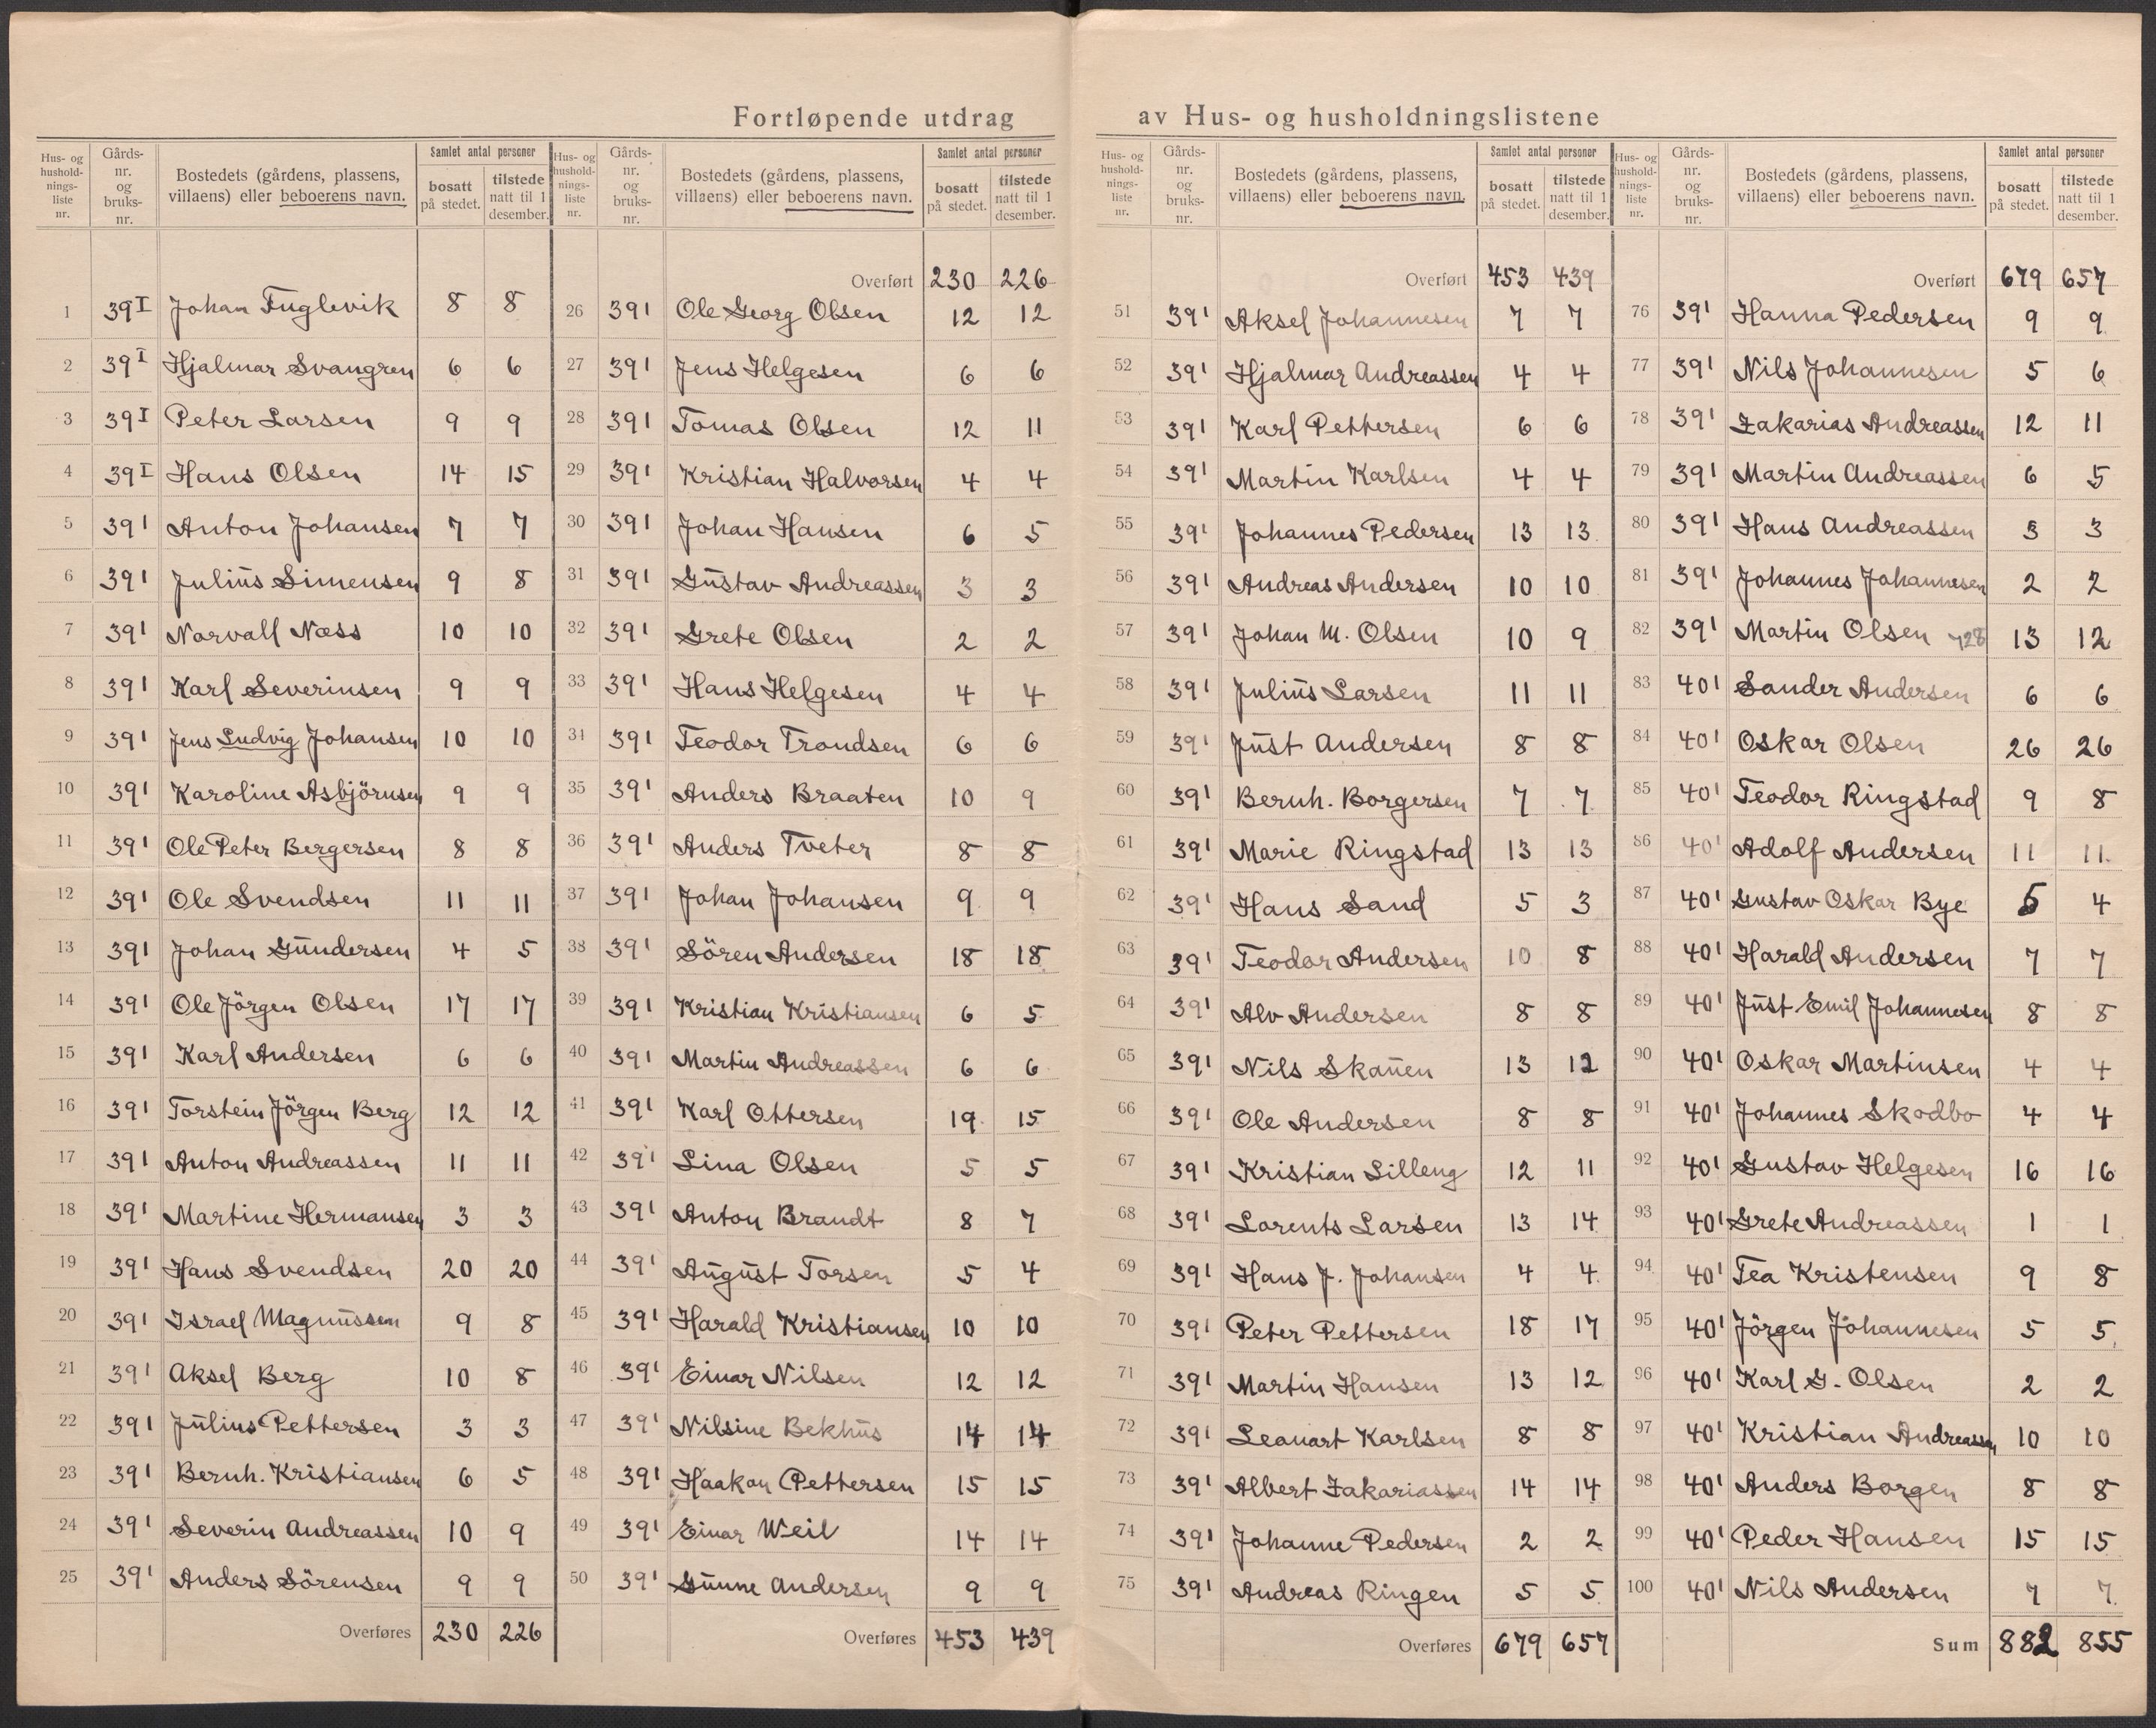 Fortløpende utdrag av Hus- og husholdningslistene
Hus- og husholdnings-liste nr. Gårds-nr. og bruks-nr. Bostedets (gårdens, plassens, villaens) eller beboerens navn. Samlet antal personer bosatt på stedet. tilstede natt til 1 desember.
1 39 I Johan Fuglevik 8 8
2 39 I Hjalmar Svangren 6 6
3 39 I Peter Larsen 9 9
4 39 I Hans Olsen 14 15
5 39 1 Anton Johansen 7 7
6 39 1 Julius Simensen 9 8
7 39 1 Norvall Næss 10 10
8 39 1 Karl Severinsen 9 9
9 39 1 Jens Ludvig Johansen 10 10
10 39 1 Karoline Asbjörnsen 9 9
11 39 1 Ole Peter Bergersen 8 8
12 39 1 Ole Svendsen 11 11
13 39 1 Johan Gundersen 4 5
14 39 1 Ole Jörgen Olsen 17 17
15 39 1 Karl Andersen 6 6
16 39 1 Torstein Jörgen Berg 12 12
17 39 1 Anton Andreassen 11 11
18 39 1 Martine Hermansen 3 3
19 39 1 Hans Svendsen 20 20
20 39 1 Israel Magnussen 9 8
21 39 1 Aksel Berg 10 8
22 39 1 Julius Pettersen 3 3
23 39 1 Bernh. Kristiansen 6 5
24 39 1 Severin Andreassen 10 9
25 39 1 Anders Sörensen 9 9
Overføres 230 226
Hus- og husholdnings-liste nr. Gårds-nr. og bruks-nr. Bostedets (gårdens, plassens, villaens) eller beboerens navn. Samlet antal personer bosatt på stedet. tilstede natt til 1 desember.
Overført 230 226
26 39 1 Ole Georg Olsen 12 12
27 39 1 Jens Helgesen 6 6
28 39 1 Tomas Olsen 12 11
29 39 1 Kristian Halvorsen 4 4
30 39 1 Johan Hansen 6 5
31 39 1 Gustav Andreassen 3 3
32 39 1 Grete Olsen 2 2
33 39 1 Hans Helgesen 4 4
34 39 1 Teodor Trondsen 6 6
35 39 1 Anders Braaten 10 9
36 39 1 Anders Tveter 8 8
37 39 1 Johan Johansen 9 9
38 39 1 Sören Andersen 18 18
39 39 1 Kristian Kristiansen 6 5
40 39 1 Martin Andreassen 6 6
41 39 1 Karl Ottersen 19 15
42 39 1 Lina Olsen 5 5
43 39 1 Anton Brandt 8 7
44 39 1 August Torsen 5 4
45 39 1 Harald Kristiansen 10 10
46 39 1 Einar Nilsen 12 12
47 39 1 Nilsine Bekhus 14 14
48 39 1 Haakon Pettersen 15 15
49 39 1 Einar Weil 14 14
50 39 1 Gunne Andersen 9 9
Overføres 453 439
Hus- og husholdnings-liste nr. Gårds-nr. og bruks-nr. Bostedets (gårdens, plassens, villaens) eller beboerens navn. Samlet antal personer bosatt på stedet. tilstede natt til 1 desember.
Overført 453 439
51 39 1 Aksel Johannesen 7 7
52 39 1 Hjalmar Andreassen 4 4
53 39 1 Karl Pettersen 6 6
54 39 1 Martin Karlsen 4 4
55 39 1 Johannes Pedersen 13 13
56 39 1 Andreas Andersen 10 10
57 39 1 Johan M. Olsen 10 9
58 39 1 Julius Larsen 11 11
59 39 1 Just Andersen 8 8
60 39 1 Bernh. Borgersen 7 7
61 39 1 Marie Ringstad 13 13
62 39 1 Hans Sand 5 3
63 39 1 Teodor Andersen 10 8
64 39 1 Alv Andersen 8 8
65 39 1 Nils Skauen 13 12
66 39 1 Ole Andersen 8 8
67 39 1 Kristian Lilleng 12 11
68 39 1 Lorents Larsen 13 14
69 39 1 Hans J. Johansen 4 4
70 39 1 Peter Pettersen 18 17
71 39 1 Martin Hansen 13 12
72 39 1 Leanart Karlsen 8 8
73 39 1 Albert Zakariassen 14 14
74 39 1 Johanne Pedersen 2 2
75 39 1 Andreas Ringen 5 5
Overføres 679 657
Hus- og husholdnings-liste nr. Gårds-nr. og bruks-nr. Bostedets (gårdens, plassens, villaens) eller beboerens navn. Samlet antal personer bosatt på stedet. tilstede natt til 1 desember.
Overført 679 657
76 39 1 Hanna Pedersen 9 9
77 39 1 Nils Johannesen 5 6
78 39 1 Zakarias Andreassen 12 11
79 39 1 Martin Andreassen 6 5
80 39 1 Hans Andreassen 3 3
81 39 1 Johannes Johannesen 2 2
82 39 1 Martin Olsen 728 13 12
83 40 1 Sander Andersen 6 6
84 40 1 Oskar Olsen 26 26
85 40 1 Teodor Ringstad 9 8
86 40 1 Adolf Andersen 11 11
87 40 1 Gustav Oskar Bye 5 4
88 40 1 Harald Andersen 7 7
89 40 1 Just Emil Johannesen 8 8
90 40 1 Oskar Martinsen 4 4
91 40 1 Johannes Skodbo 4 4
92 40 1 Gustav Helgesen 16 16
93 40 1 Grete Andreassen 1 1
94 40 1 Tea Kristensen 9 8
95 40 1 Jörgen Johannesen 5 5
96 40 1 Karl G. Olsen 2 2
97 40 1 Kristian Andreassen 10 10
98 40 1 Anders Borgen 8 8
99 40 1 Peder Hansen 15 15
100 40 1 Nils Andersen 7 7
Sum 882 855